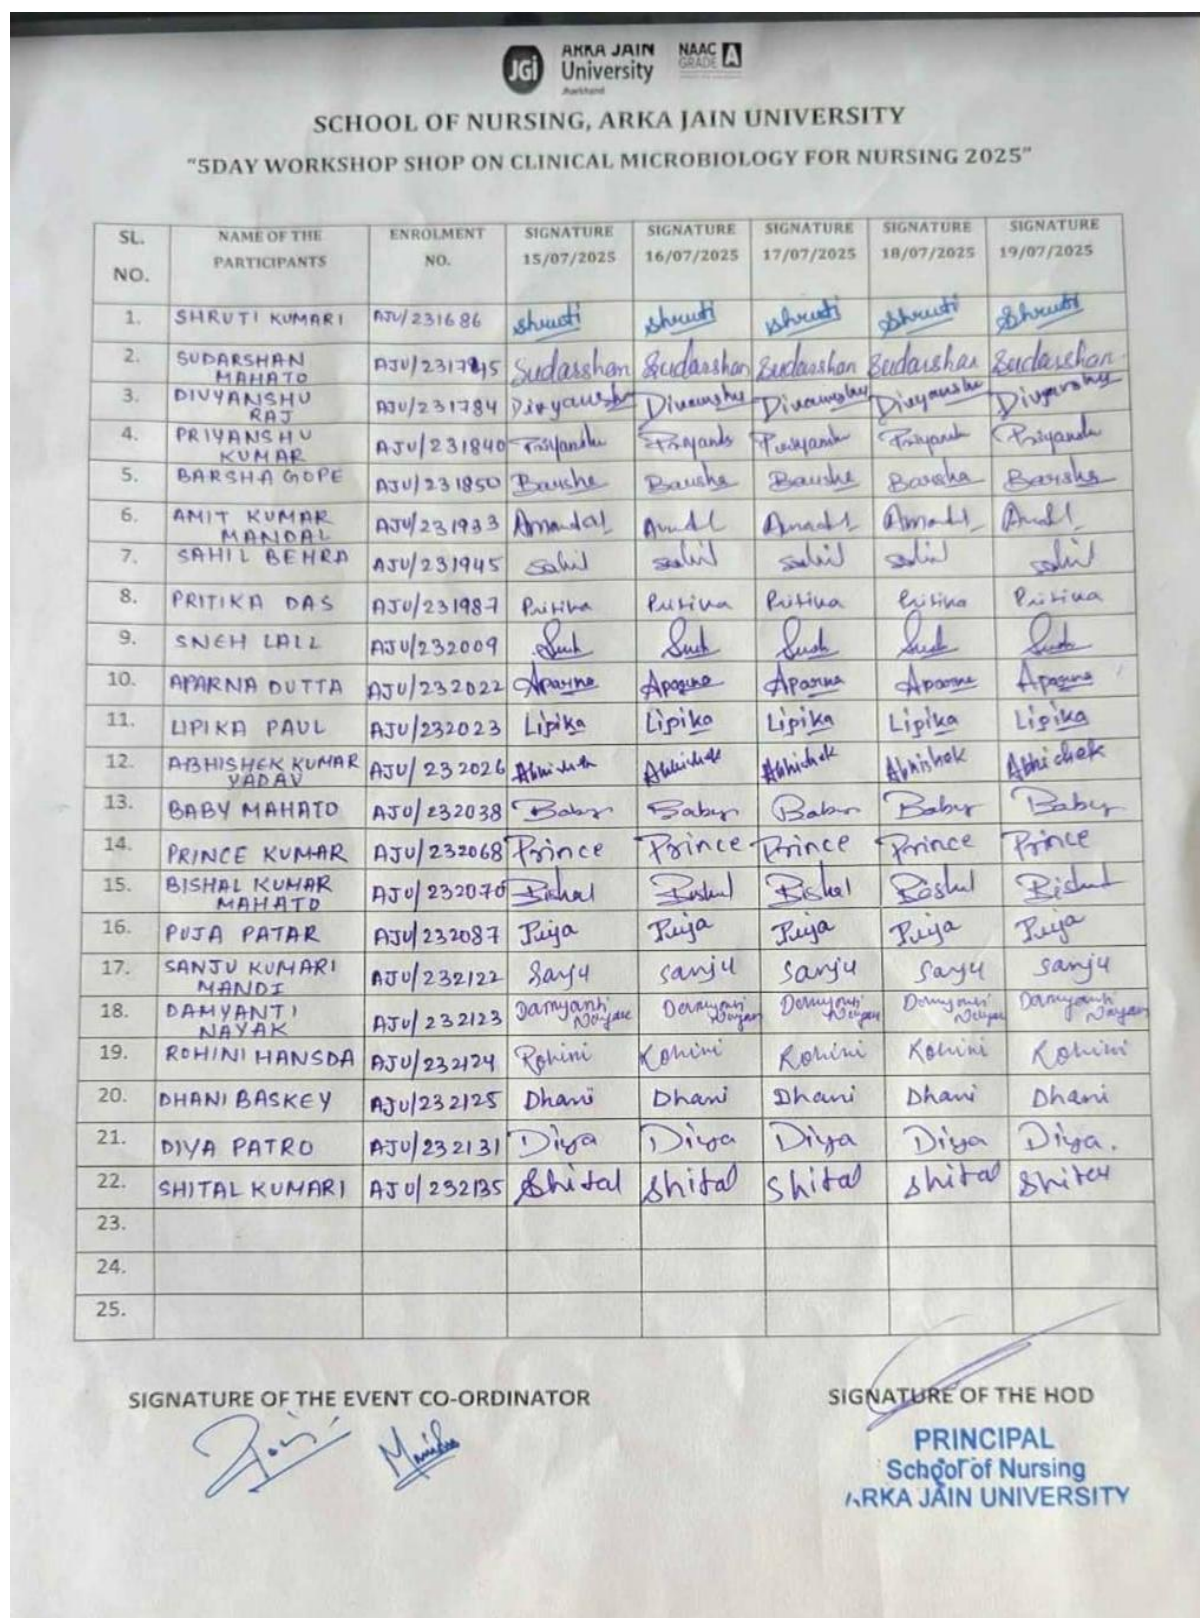 JGi ARKA JAIN University Jharkhand NAAC GRADE A
SCHOOL OF NURSING, ARKA JAIN UNIVERSITY
"5DAY WORKSHOP SHOP ON CLINICAL MICROBIOLOGY FOR NURSING 2025"
SL. NO. NAME OF THE PARTICIPANTS ENROLMENT NO. SIGNATURE 15/07/2025 SIGNATURE 16/07/2025 SIGNATURE 17/07/2025 SIGNATURE 18/07/2025 SIGNATURE 19/07/2025
1. SHRUTI KUMARI AJU/231686 Shruti Shruti Shruti Shruti Shruti
2. SUDARSHAN MAHATO Sudarshan Sudarshan Sudarshan Sudarshan Sudarshan
3. DIVYANSHU RAJ AJU/231784 Divyanshu Divyanshu
4. PRIYANSHU KUMAR AJU/231840 Priyanshu
5. BARSHA GOPE AJU/231850 Barsha Barsha Barsha Barsha Barsha
6. AMIT KUMAR MANDAL AJU/231933 Amandal
7. SAHIL BEHRA AJU/231945 sahil sahil sahil sahil sahil
8. PRITIKA DAS AJU/231987 Pritika Pritika Pritika Pritika Pritika
9. SNEH LALL AJU/232009
10. APARNA DUTTA AJU/232022 Aparna Aparna Aparna Aparna Aparna
11. LIPIKA PAUL AJU/232023 Lipika Lipika Lipika Lipika Lipika
12. ABHISHEK KUMAR YADAV AJU/232026 Abhishek Abhishek Abhishek Abhishek
13. BABY MAHATO AJU/232038 Baby Baby Baby Baby Baby
14. PRINCE KUMAR AJU/232068 Prince Prince Prince Prince Prince
15. BISHAL KUMAR MAHATO AJU/232070 Bishal Bishal Bishal Bishal Bishal
16. PUJA PATAR AJU/232087 Puja Puja Puja Puja Puja
17. SANJU KUMARI MANDI AJU/232122 Sanju Sanju Sanju Sanju Sanju
18. DAMYANTI NAYAK AJU/232123 Damyanti Nayak Damyanti Nayak Damyanti Nayak Damyanti Nayak Damyanti Nayak
19. ROHINI HANSDA AJU/232124 Rohini Rohini Rohini Rohini Rohini
20. DHANI BASKEY AJU/232125 Dhani Dhani Dhani Dhani Dhani
21. DIYA PATRO AJU/232131 Diya Diya Diya Diya Diya.
22. SHITAL KUMARI AJU/232135 Shital Shital Shital Shital Shital
23.
24.
25.
SIGNATURE OF THE EVENT CO-ORDINATOR SIGNATURE OF THE HOD
PRINCIPAL
School of Nursing
ARKA JAIN UNIVERSITY